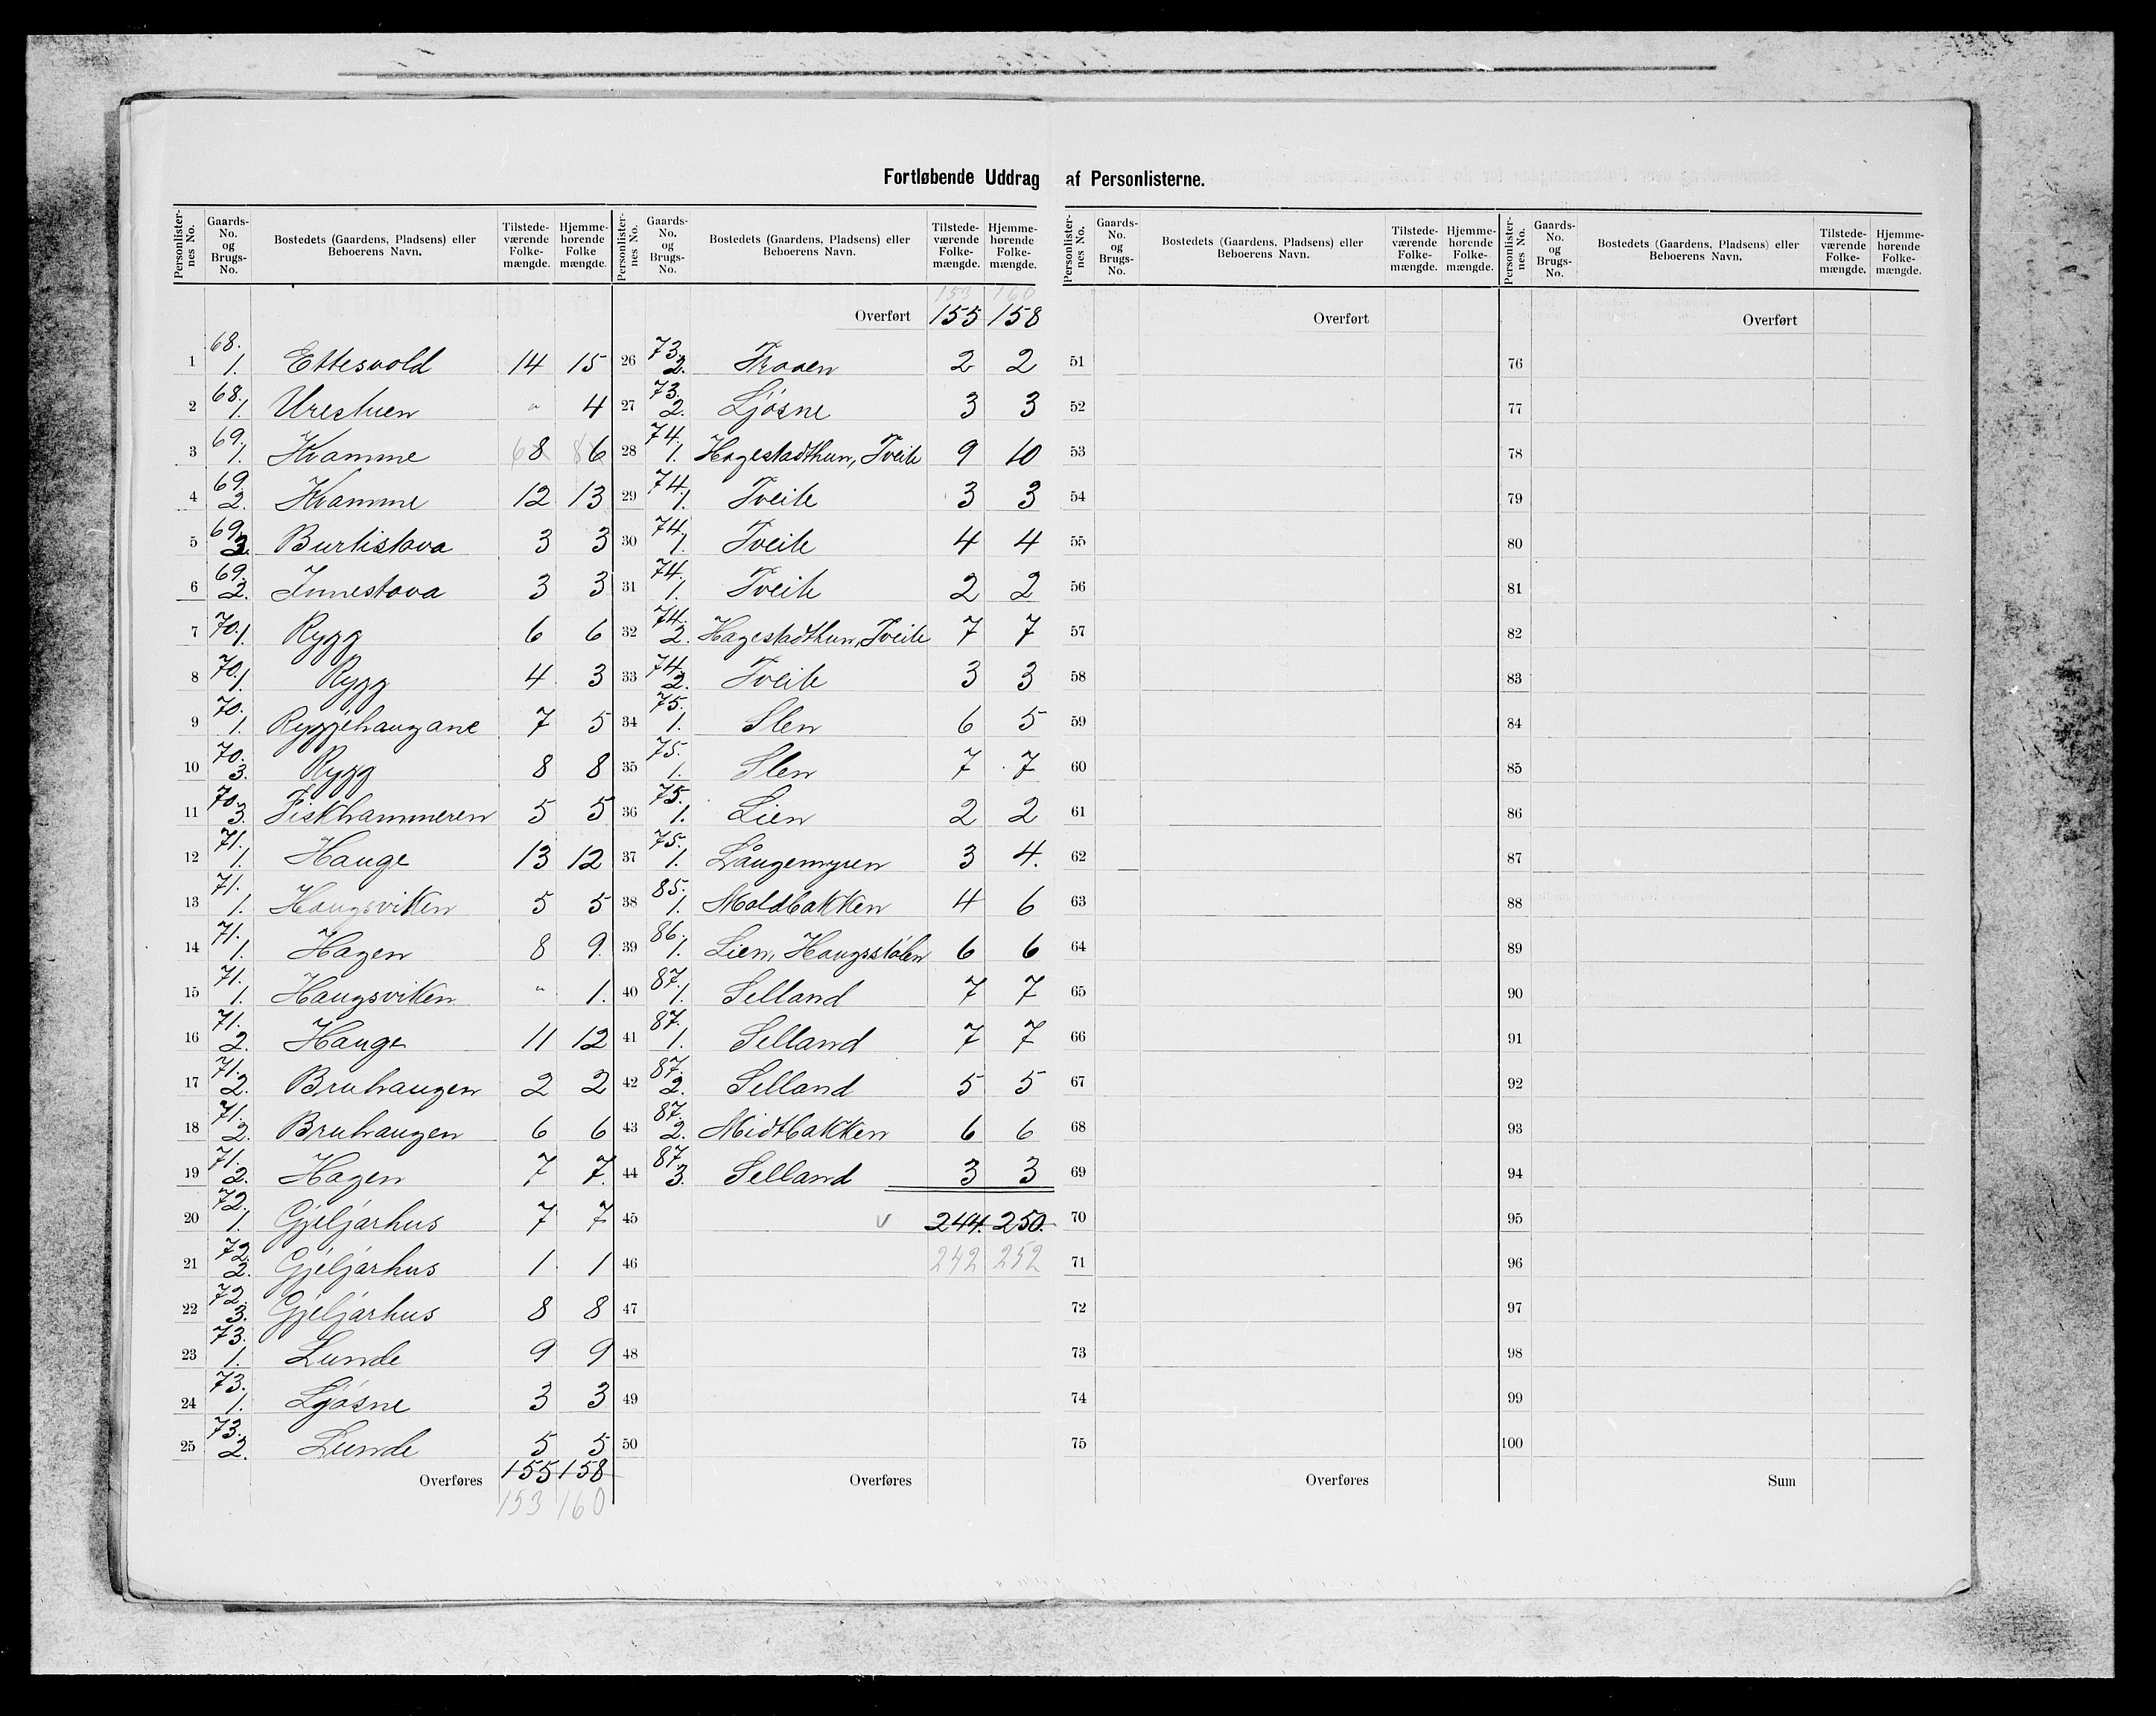 Fortløbende Uddrag af Personlisterne.
Personlister-nes No. | Gaards-No. og Brugs-No. | Bostedets (Gaardens, Pladsens) eller Beboerens Navn. | Tilstede-værende Folke-mængde. | Hjemme-hørende Folke mængde.
1 68. 1. Ettesvold 14 15
2 68. 1. Urestuen " 4
3 69. 1. Kvamme 8 6
4 69. 2. Kvamme 12 13
5 69. 3. Burtistova 3 3
6 69. 2. Innestova 3 3
7 70. 1. Rygg 6 6
8 70. 1. Rygg 4 3
9 70. 1. Ryggjehaugane 7 5
10 70. 3. Rygg 8 8
11 70. 3. Fiskhammeren 5 5
12 71. 1. Hauge 13 12
13 71. 1. Haugsviken 5 5
14 71. 1. Hagen 8 9
15 71. 1. Haugsviken " 1.
16 71. 2. Hauge 11 12
17 71. 2. Bruhaugen 2 2
18 71. 2. Bruhaugen 6 6
19 71. 2. Hagen 7 7.
20 72. 1. Gjeljarhus 7 7
21 72. 2. Gjeljarhus 1 1
22 72. 3. Gjeljarhus 8 8
23 73. 1. Lunde 9 9
24 73. 1. Ljøsne 3 3
25 73. 2. Lunde 5 5
Overføres 155 158
153 160
Personlister-nes No. | Gaards-No. og Brugs-No. | Bostedets (Gaardens, Pladsens) eller Beboerens Navn. | Tilstede-værende Folke-mængde. | Hjemme-hørende Folke-mængde.
153 160
Overført 155 158
26 73. 2. Traaen 2 2
27 73. 2. Ljøsne 3 3
28 74. 1. Hagestadthun, Tveite 9 10
29 74. 1. Tveite 3 3
30 74. 1. Tveite 4 4
31 74. 1. Tveite 2 2
32 74. 2. Hagestadthun, Tveite 7 7
33 74. 2. Tveite 3 3
34 75. 1. Slen 6 5
35 75. 1. Slen 7 7
36 75. 1. Lien 2 2
37 75. 1. Langemyren 3 4.
38 85. 1. Moldbakken 4 6
39 86. 1. Lien, Haugsstølen 6 6
40 87. 1. Selland 7 7
41 87. 1. Selland 7 7
42 87. 2. Selland 5 5
43 87. 2. Midtbakken 6 6
44 87. 3. Selland 3 3
45 v 244. 250.
46 242 252
47
48
49
50
Overføres
Personlister-nes No. | Gaards-No. og Brugs-No. | Bostedets (Gaardens, Pladsens) eller Beboerens Navn. | Tilstede-værende Folke-mængde. | Hjemme-hørende Folke-mængde.
Overført
51
52
53
54
55
56
57
58
59
60
61
62
63
64
65
66
67
68
69
70
71
72
73
74
75
Overføres
Personlister-nes No. | Gaards-No. og Brugs-No. | Bostedets (Gaardens, Pladsens) eller Beboerens Navn. | Tilstede-værende Folke-mængde. | Hjemme-hørende Folke-mængde.
Overført
76
77
78
79
80
81
82
83
84
85
86
87
88
89
90
91
92
93
94
95
96
97
98
99
100
Sum